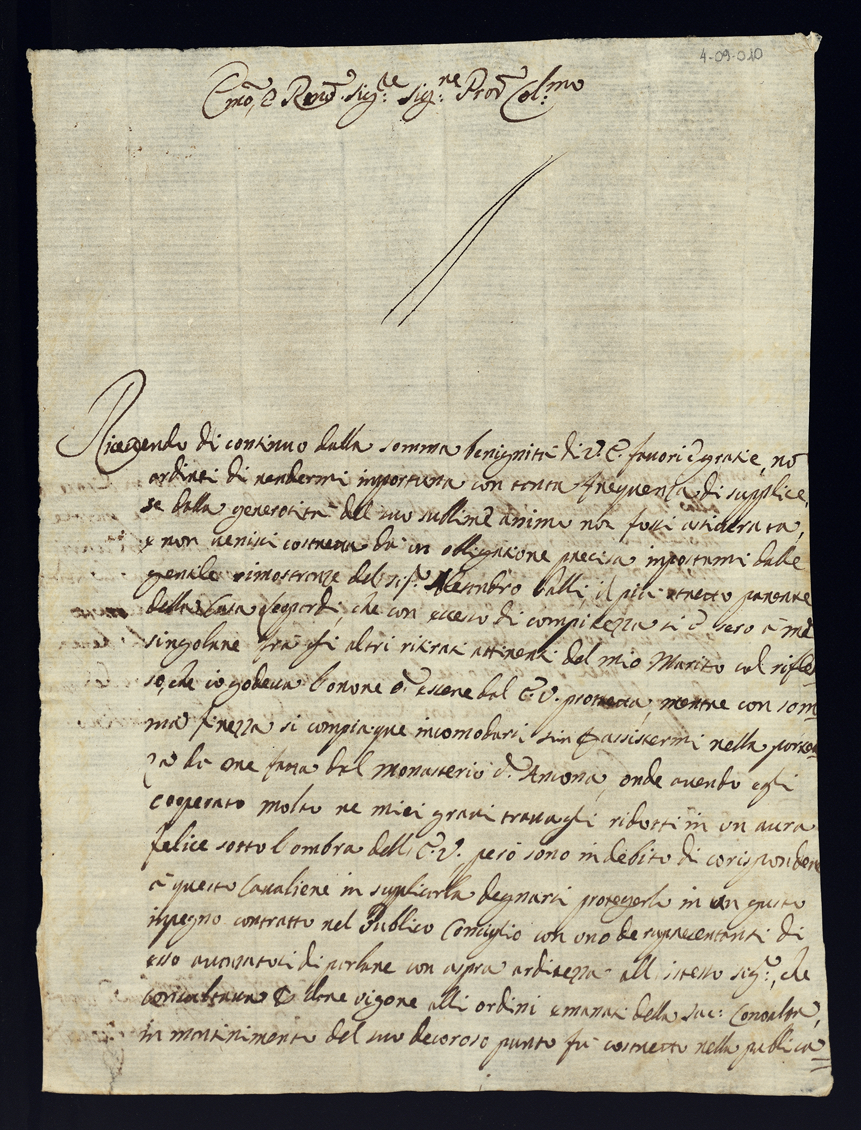 4-09-010
Emõ, e Revmõ Sig.re Sig.ne Prõn Col.mo
Ricevendo di continuo dalla somma benignità di V. E. favori e gratie, nõ
ardirei di rendermi importuna con tanta frequenza di suppliche,
se dalla generosità del suo sublime animo non fossi considerata,
e non venissi costretta da un obligatione precisa impostami dalle
gentile rimostranze del Sig.r Alesandro Balli, il più stretto parente
della Casa Segardi, che con eccesso di compitezza si è reso à me
singolare frà gli altri ritirati attinenti del mio Marito col rifles=
so, che io godeva l'onore d'essere dal E. V. protetta, mentre con som=
ma finezza si compiaque incomodarsi sin ad assistermi nella parten=
za da me fatta dal monasterio d'Ancona, onde avendo egli
cooperato molto ne miei gravi travagli ridotti in un aura
felice sotto l'ombra dell'E. V. però sono in debito di corispondere
à questo Cavaliere in supplicarla degnarsi protegerlo in un giusto
impegno contratto nel Publico Consiglio con uno de rapresentanti di
esso avanzatosi di parlare con aspra arditezza all'istesso Sig.r, che
per dare vigore alli ordini emanati della Sac: Consulta,
in mantinimento del suo decoroso punto fù costretto nella publica